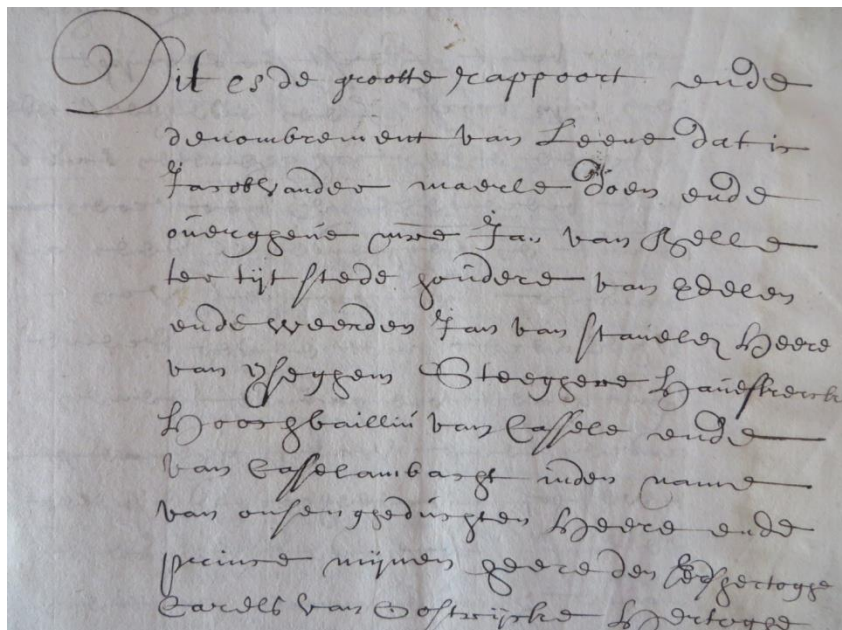 Dit es de grootte Rappoort ende
denombrement van Leene dat ic
Jacob vander maerle Doen ende
ouerggeue mre Jan van Belle
ter tijt stede houdere van Edelen
ende weerden Jan van stauele Heere
van yseghem Steeghere Hauefkerck
Hooghbailliu van Cassele ende
van Casselambacht inden name
van onsen gheduchten Heere ende
prince mijnen heere den Eertshertogge
Carels van Oostrijcke Hertogge